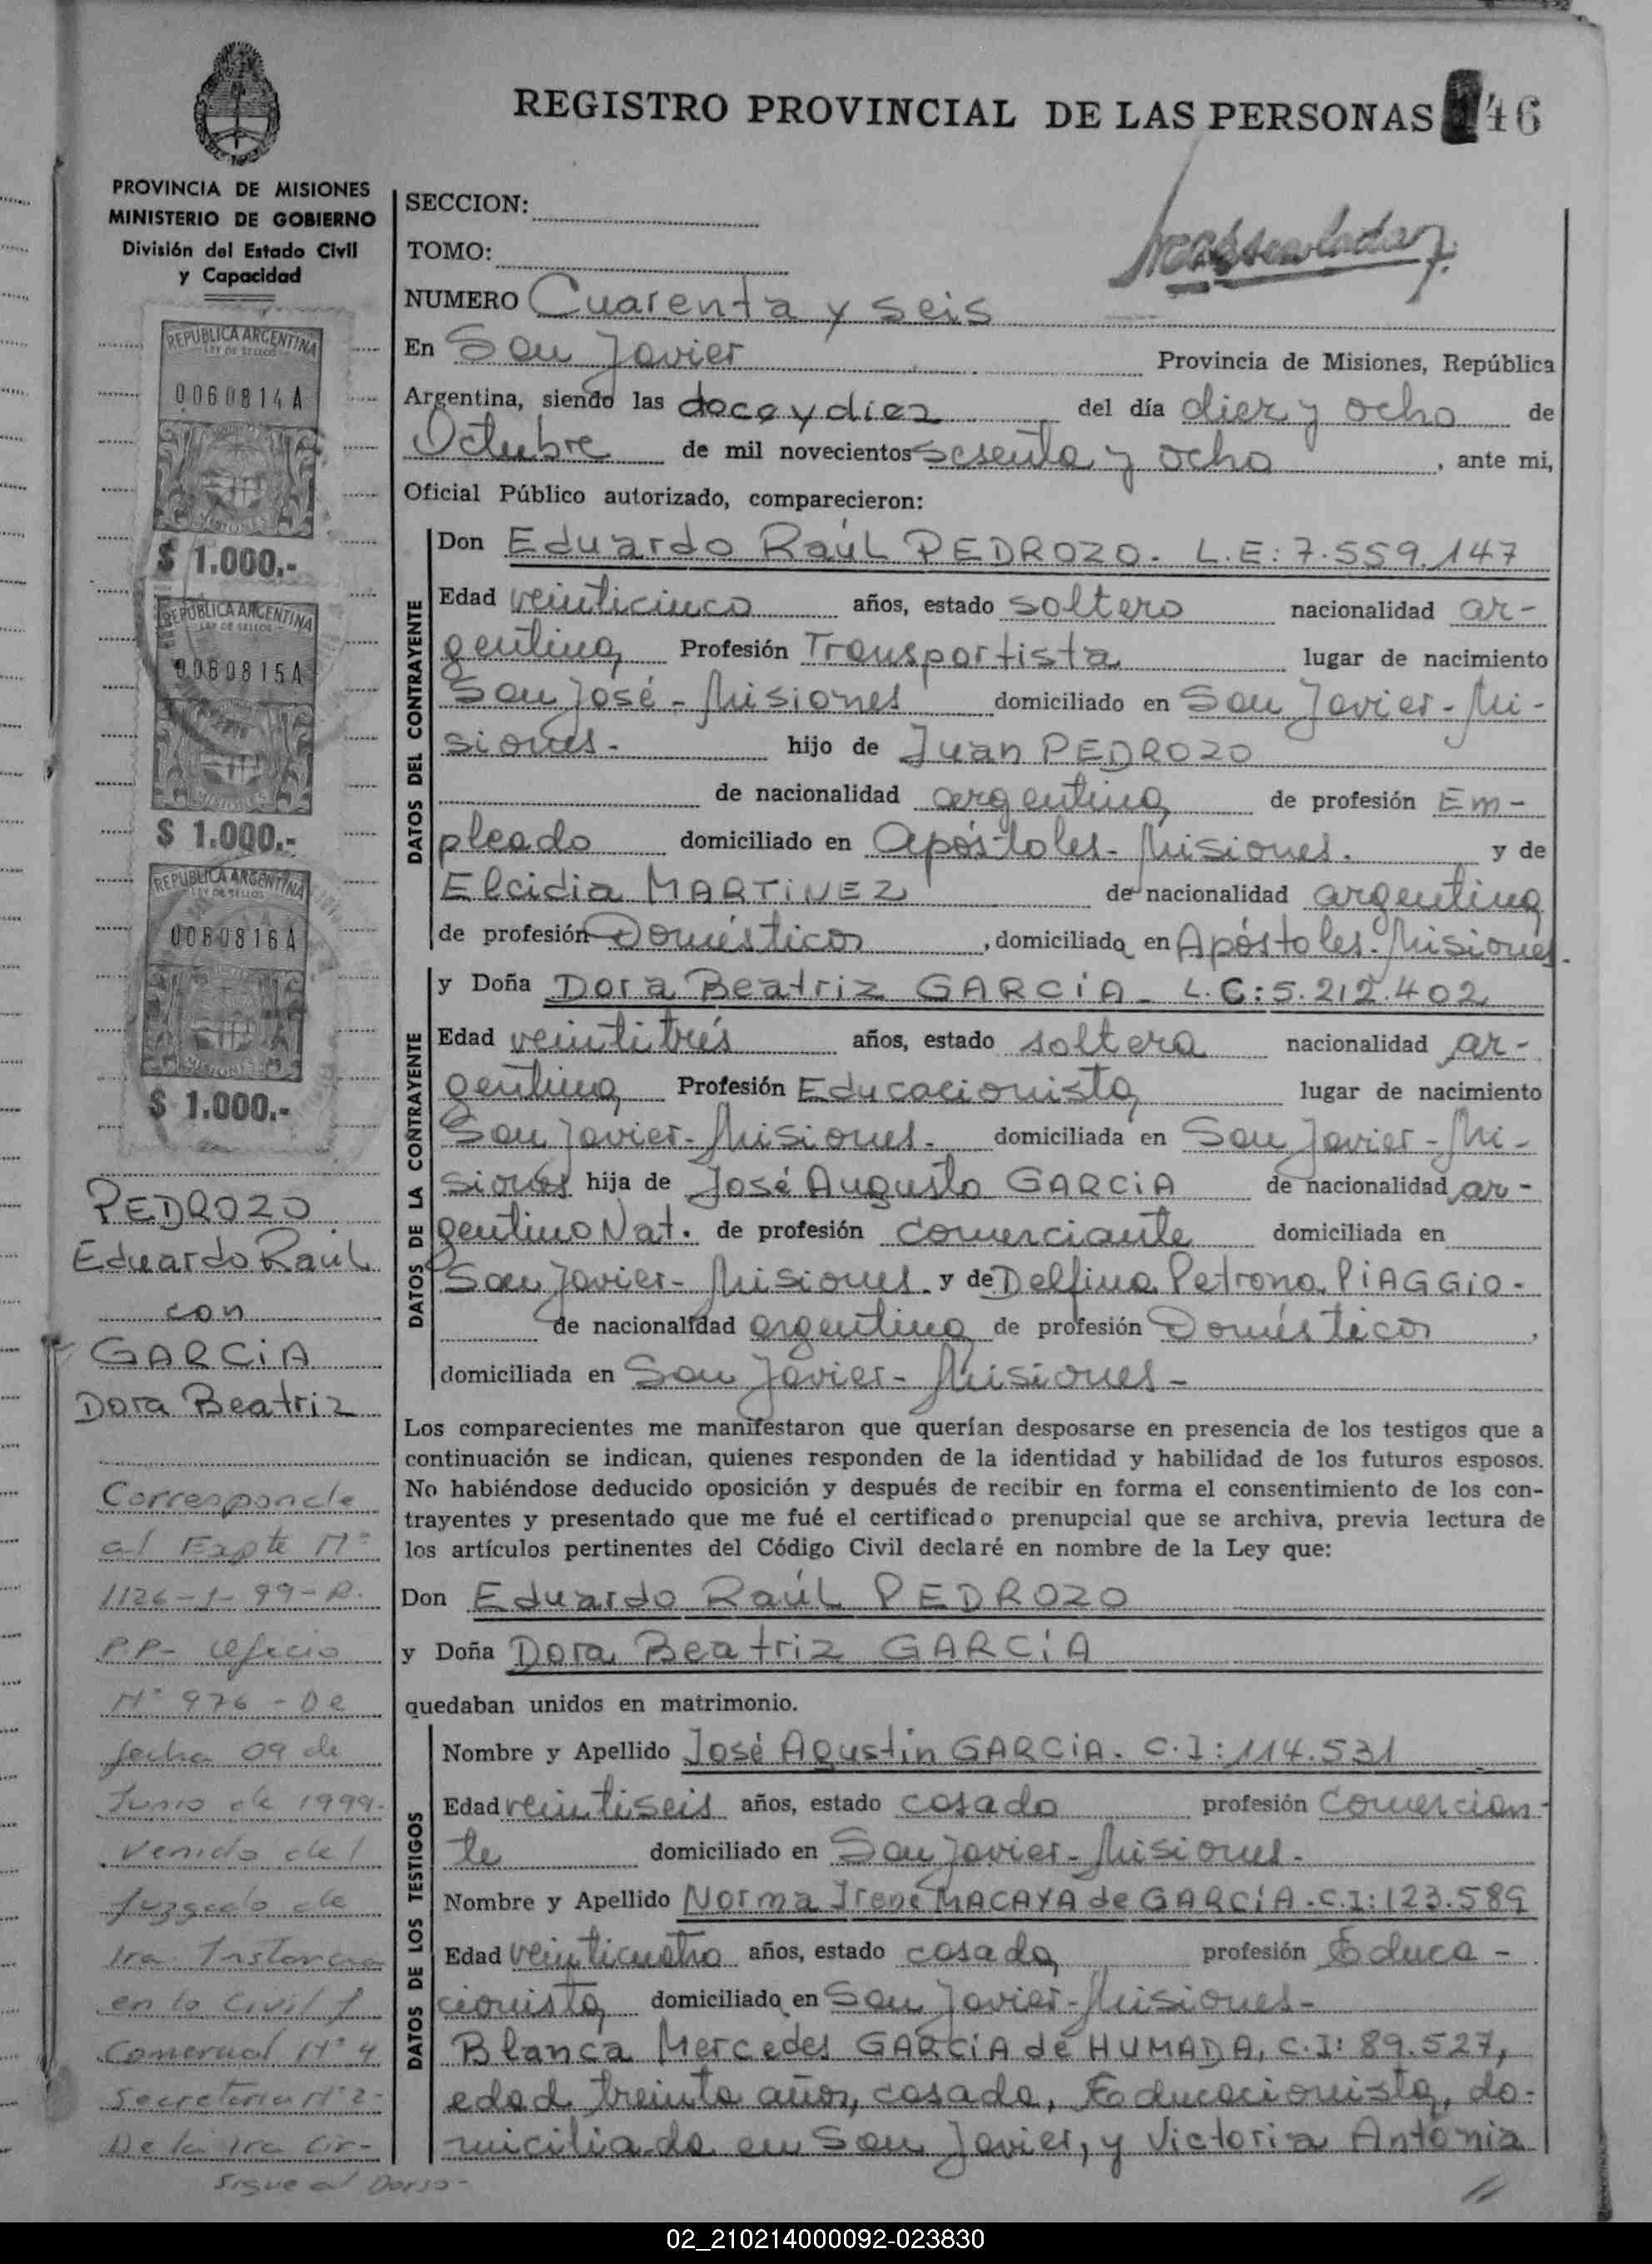 REGISTRO PROVINCIAL DE LAS PERSONAS 46
PROVINCIA DE MISIONES
MINISTERIO DE GOBIERNO
División del Estado Civil
y Capacidad
REPUBLICA ARGENTINA
LEY DE SELLOS
0060814A
MISIONES
$ 1.000.-
REPUBLICA ARGENTINA
LEY DE SELLOS
0060815A
MISIONES
$ 1.000.-
REPUBLICA ARGENTINA
LEY DE SELLOS
0060816A
MISIONES
$ 1.000.-
PEDROZO
Eduardo Raúl
con
GARCIA
Dora Beatriz
Corresponde
al Expte Nº
1126-1-99-R.
P.P- oficio
Nº 976 - De
fecha 09 de
Junio de 1999-
venido del
Juzgado de
1ra Instancia
en lo Civil y
Comercial Nº 4
Secretaria Nº 2-
De la 1ra Cir-
Sigue al Dorso-
SECCION:
TOMO:
NUMERO Cuarenta y seis
En San Javier Provincia de Misiones, República
Argentina, siendo las doce y diez del día diez y ocho de
Octubre de mil novecientos sesenta y ocho, ante mi,
Oficial Público autorizado, comparecieron:
DATOS DEL CONTRAYENTE
Don Eduardo Raúl PEDROZO. L.E: 7.559.147
Edad veinticinco años, estado soltero nacionalidad ar-
gentina Profesión Transportista lugar de nacimiento
San José - Misiones domiciliado en San Javier - Mi-
siones. hijo de Juan PEDROZO
de nacionalidad argentina de profesión Em-
pleado domiciliado en Apóstoles - Misiones. y de
Elcidia MARTINEZ de nacionalidad argentina
de profesión Domésticos, domiciliada en Apóstoles - Misiones.
DATOS DE LA CONTRAYENTE
y Doña Dora Beatriz GARCIA - L.C: 5.212.402
Edad veintitrés años, estado soltera nacionalidad ar-
gentina Profesión Educacionista lugar de nacimiento
San Javier - Misiones. domiciliada en San Javier - Mi-
siones hija de José Augusto GARCIA de nacionalidad ar-
gentino Nat. de profesión comerciante domiciliada en
San Javier - Misiones y de Delfina Petrona PIAGGIO-
de nacionalidad argentina de profesión Domésticos,
domiciliada en San Javier - Misiones-
Los comparecientes me manifestaron que querían desposarse en presencia de los testigos que a
continuación se indican, quienes responden de la identidad y habilidad de los futuros esposos.
No habiéndose deducido oposición y después de recibir en forma el consentimiento de los con-
trayentes y presentado que me fué el certificado prenupcial que se archiva, previa lectura de
los artículos pertinentes del Código Civil declaré en nombre de la Ley que:
Don Eduardo Raúl PEDROZO
y Doña Dora Beatriz GARCIA
quedaban unidos en matrimonio.
DATOS DE LOS TESTIGOS
Nombre y Apellido José Agustin GARCIA. C.I: 114.531
Edad veintiseis años, estado casado profesión Comercian-
te domiciliado en San Javier - Misiones.
Nombre y Apellido Norma Irene MACAYA de GARCIA. C.I: 123.589
Edad veinticuatro años, estado casada profesión Educa-
cionista domiciliada en San Javier - Misiones-
Blanca Mercedes GARCIA de HUMADA, C.I: 89.527,
edad treinta años, casada, Educacionista, do-
miciliada en San Javier, y Victoria Antonia
02_210214000092-023830